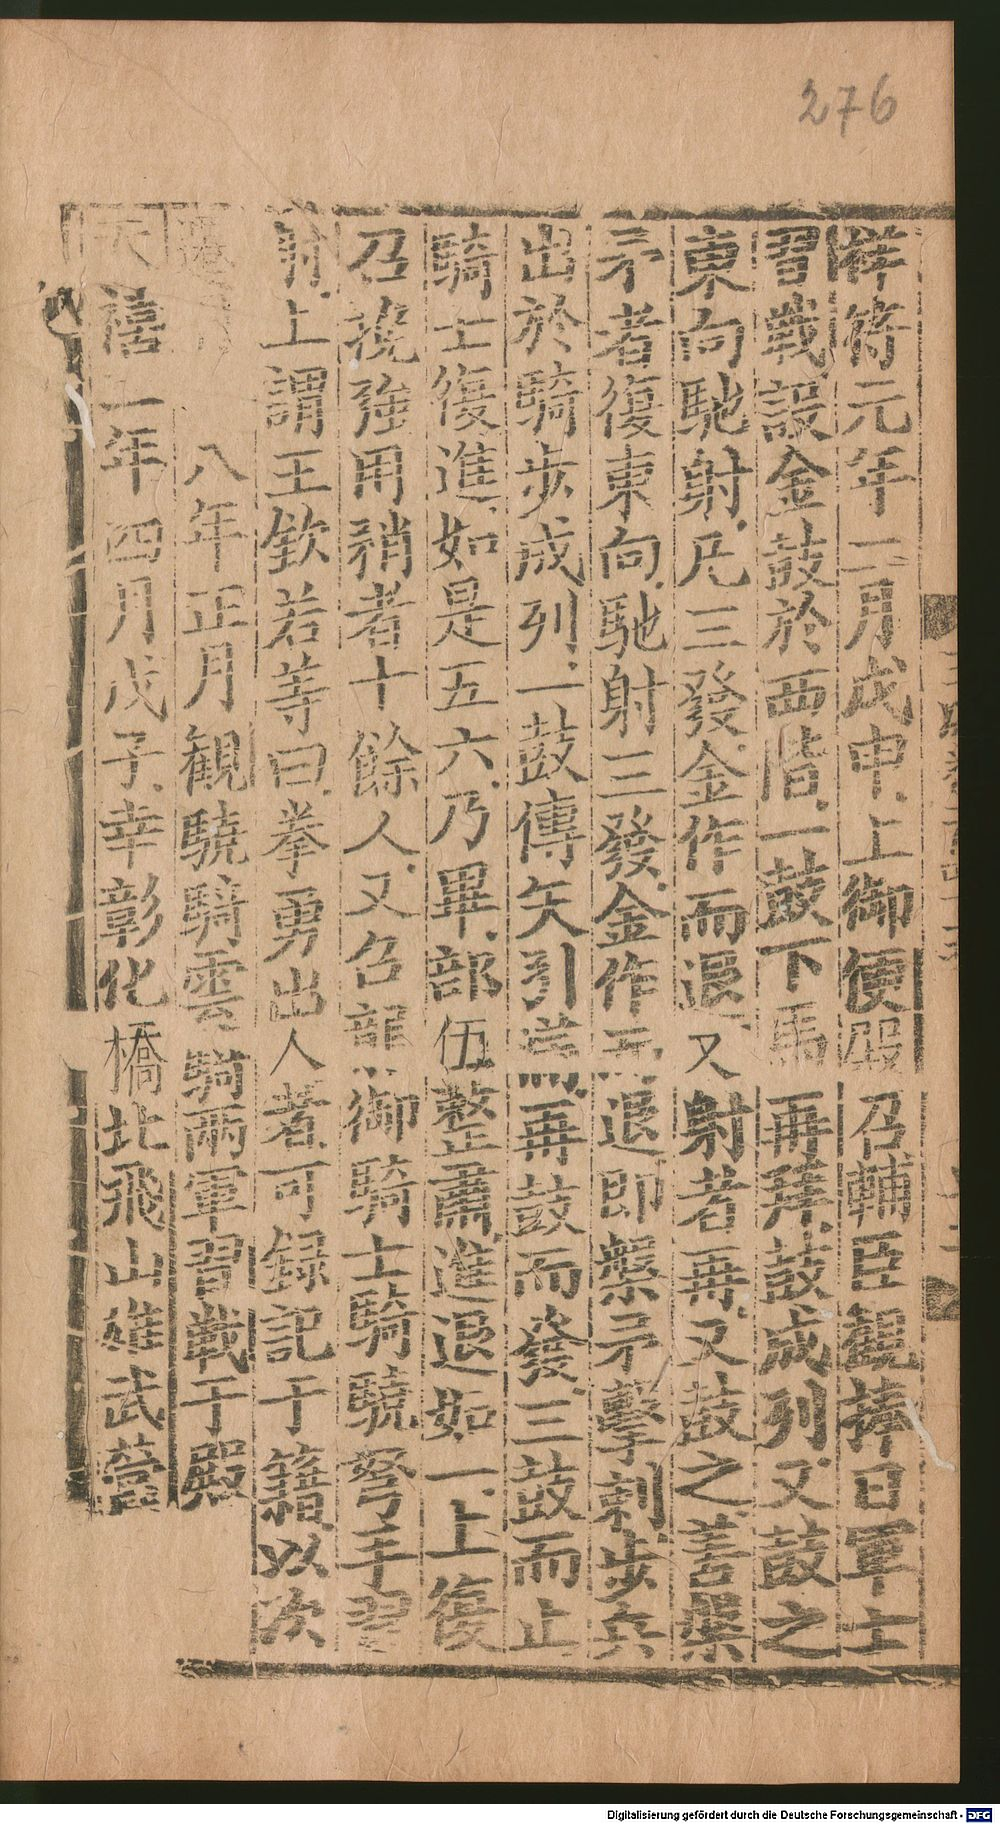 276
祥符元年二月戊申上御便殿召輔臣觀捧日軍士
習戰設金鼓於西階一鼓下馬再拜鼓成列又鼓之
東向馳射凡三發金作而退又射者再又鼓之善槊
矛者復東向馳射三發金作而退即繫矛擊刺步兵
出於騎步成列一鼓傳矢引滿再鼓而發三鼓而止
騎士復進如是五六乃畢部伍整肅進退如一上復
召挽強用矟者十餘人又召龍御騎士騎驍弩手習
射上謂王欽若等曰拳勇出人者可録記于籍以次
八年正月觀驍騎雲騎兩軍習戰于殿
天禧二年四月戊子幸彰化橋北飛山雄武營
Digitalisierung gefördert durch die Deutsche Forschungsgemeinschaft - DFG